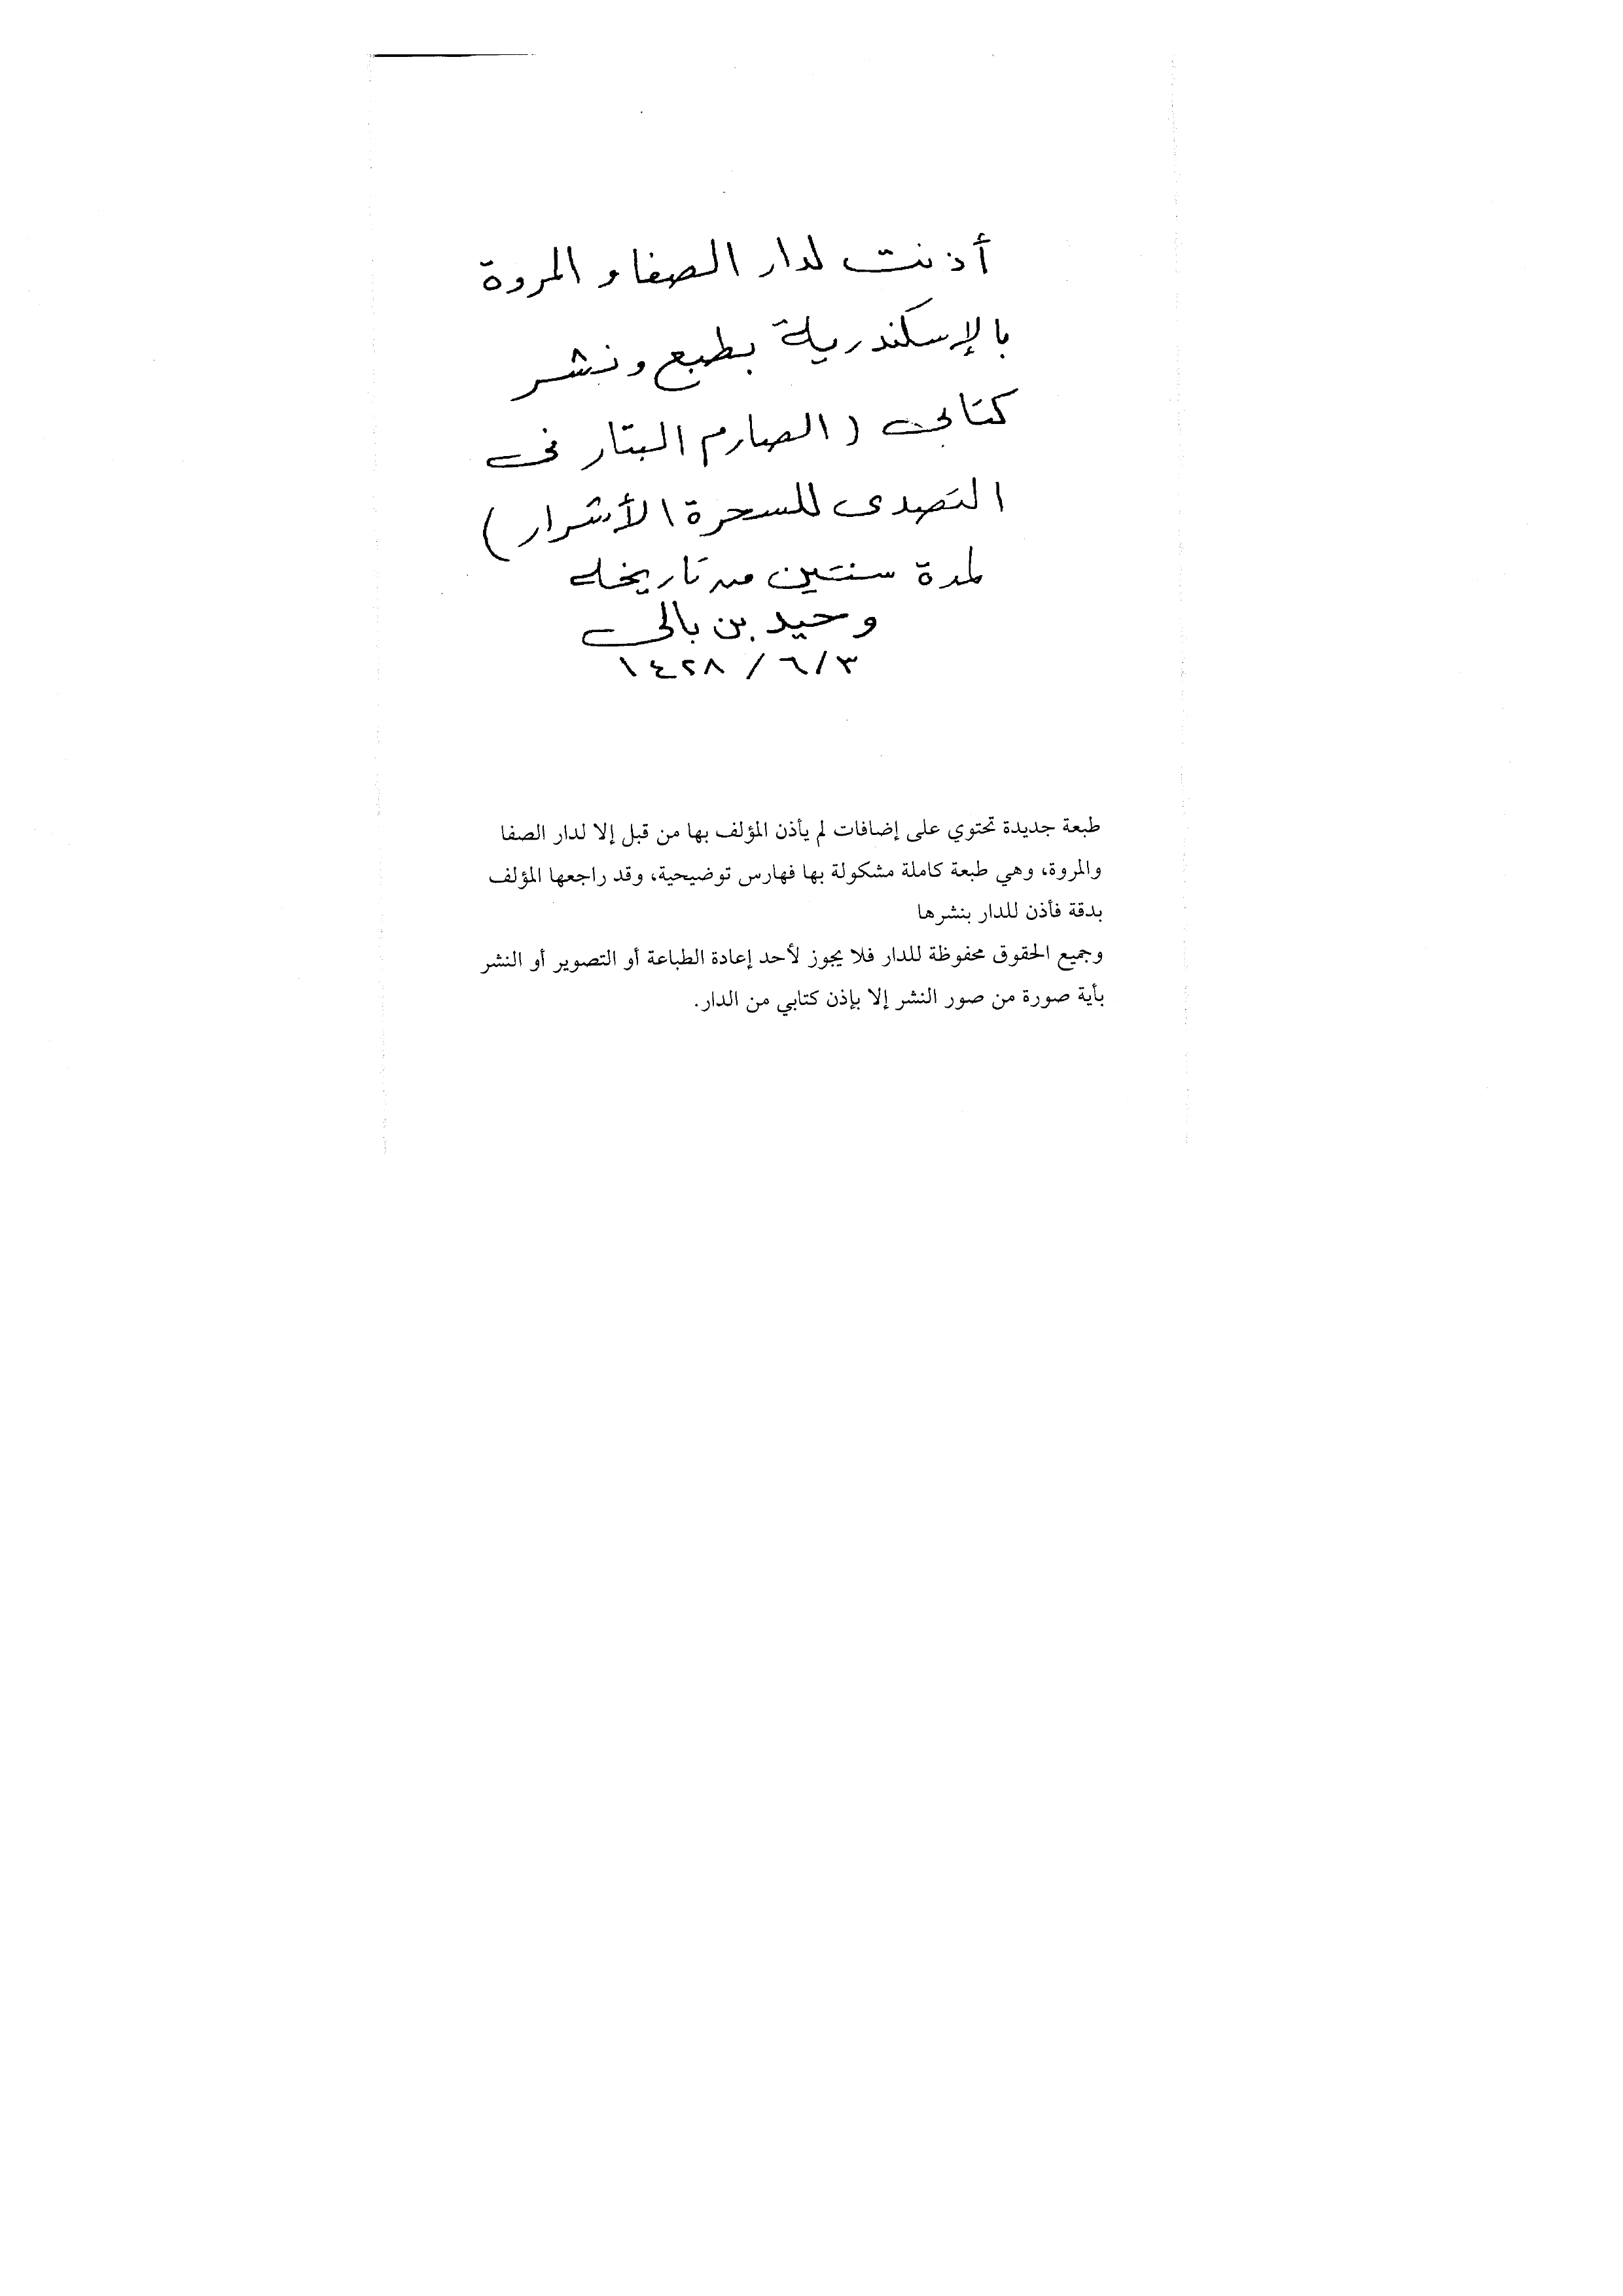 أذنت لدار الصفا والمروة
بالإسكندرية بطبع ونشر
كتابى (الصارم البتار فى
التصدى للسحرة الأشرار)
لمدة سنتين من تاريخه
وحيد بن بالى
٣/ ٦/ ١٤٢٨
طبعة جديدة تحتوي على إضافات لم يأذن المؤلف بها من قبل إلا لدار الصفا
والمروة، وهي طبعة كاملة مشكولة بها فهارس توضيحية، وقد راجعها المؤلف
بدقة فأذن للدار بنشرها
وجميع الحقوق محفوظة للدار فلا يجوز لأحد إعادة الطباعة أو التصوير أو النشر
بأية صورة من صور النشر إلا بإذن كتابي من الدار.